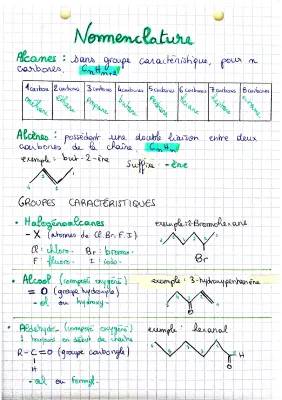 Nomenclature
Alcanes : sans groupe caractéristique, pour n
carbones, CnHn+2
1 carbone 2 carbones 3 carbones 4 carbones 5 carbones 6 carbones 7 carbones 8 carbones
méthane éthane propane butane pentane hexane heptane octane
Alcènes : possédant une double liaison entre deux
carbones de la chaîne, CnHn
exemple : but-2-ène Suffixe -ène
GROUPES CARACTÉRISTIQUES
• Halogénoalcanes exemple : 2-Bromohexane
- X (atomes de Cl. Br. F. I)
Cl : chloro. Br : bromo.
F : fluoro. I : iodo. Br
• Alcool (composé oxygéné) exemple : 3-hydroxypentanène
= O (groupe hydroxyle)
- ol ou hydroxy. O
• Aldéhyde (composé oxygéné) exemple : hexanal
! toujours en début de chaîne
R - C = O (groupe carbonyle) O H
H
- al ou formyl.